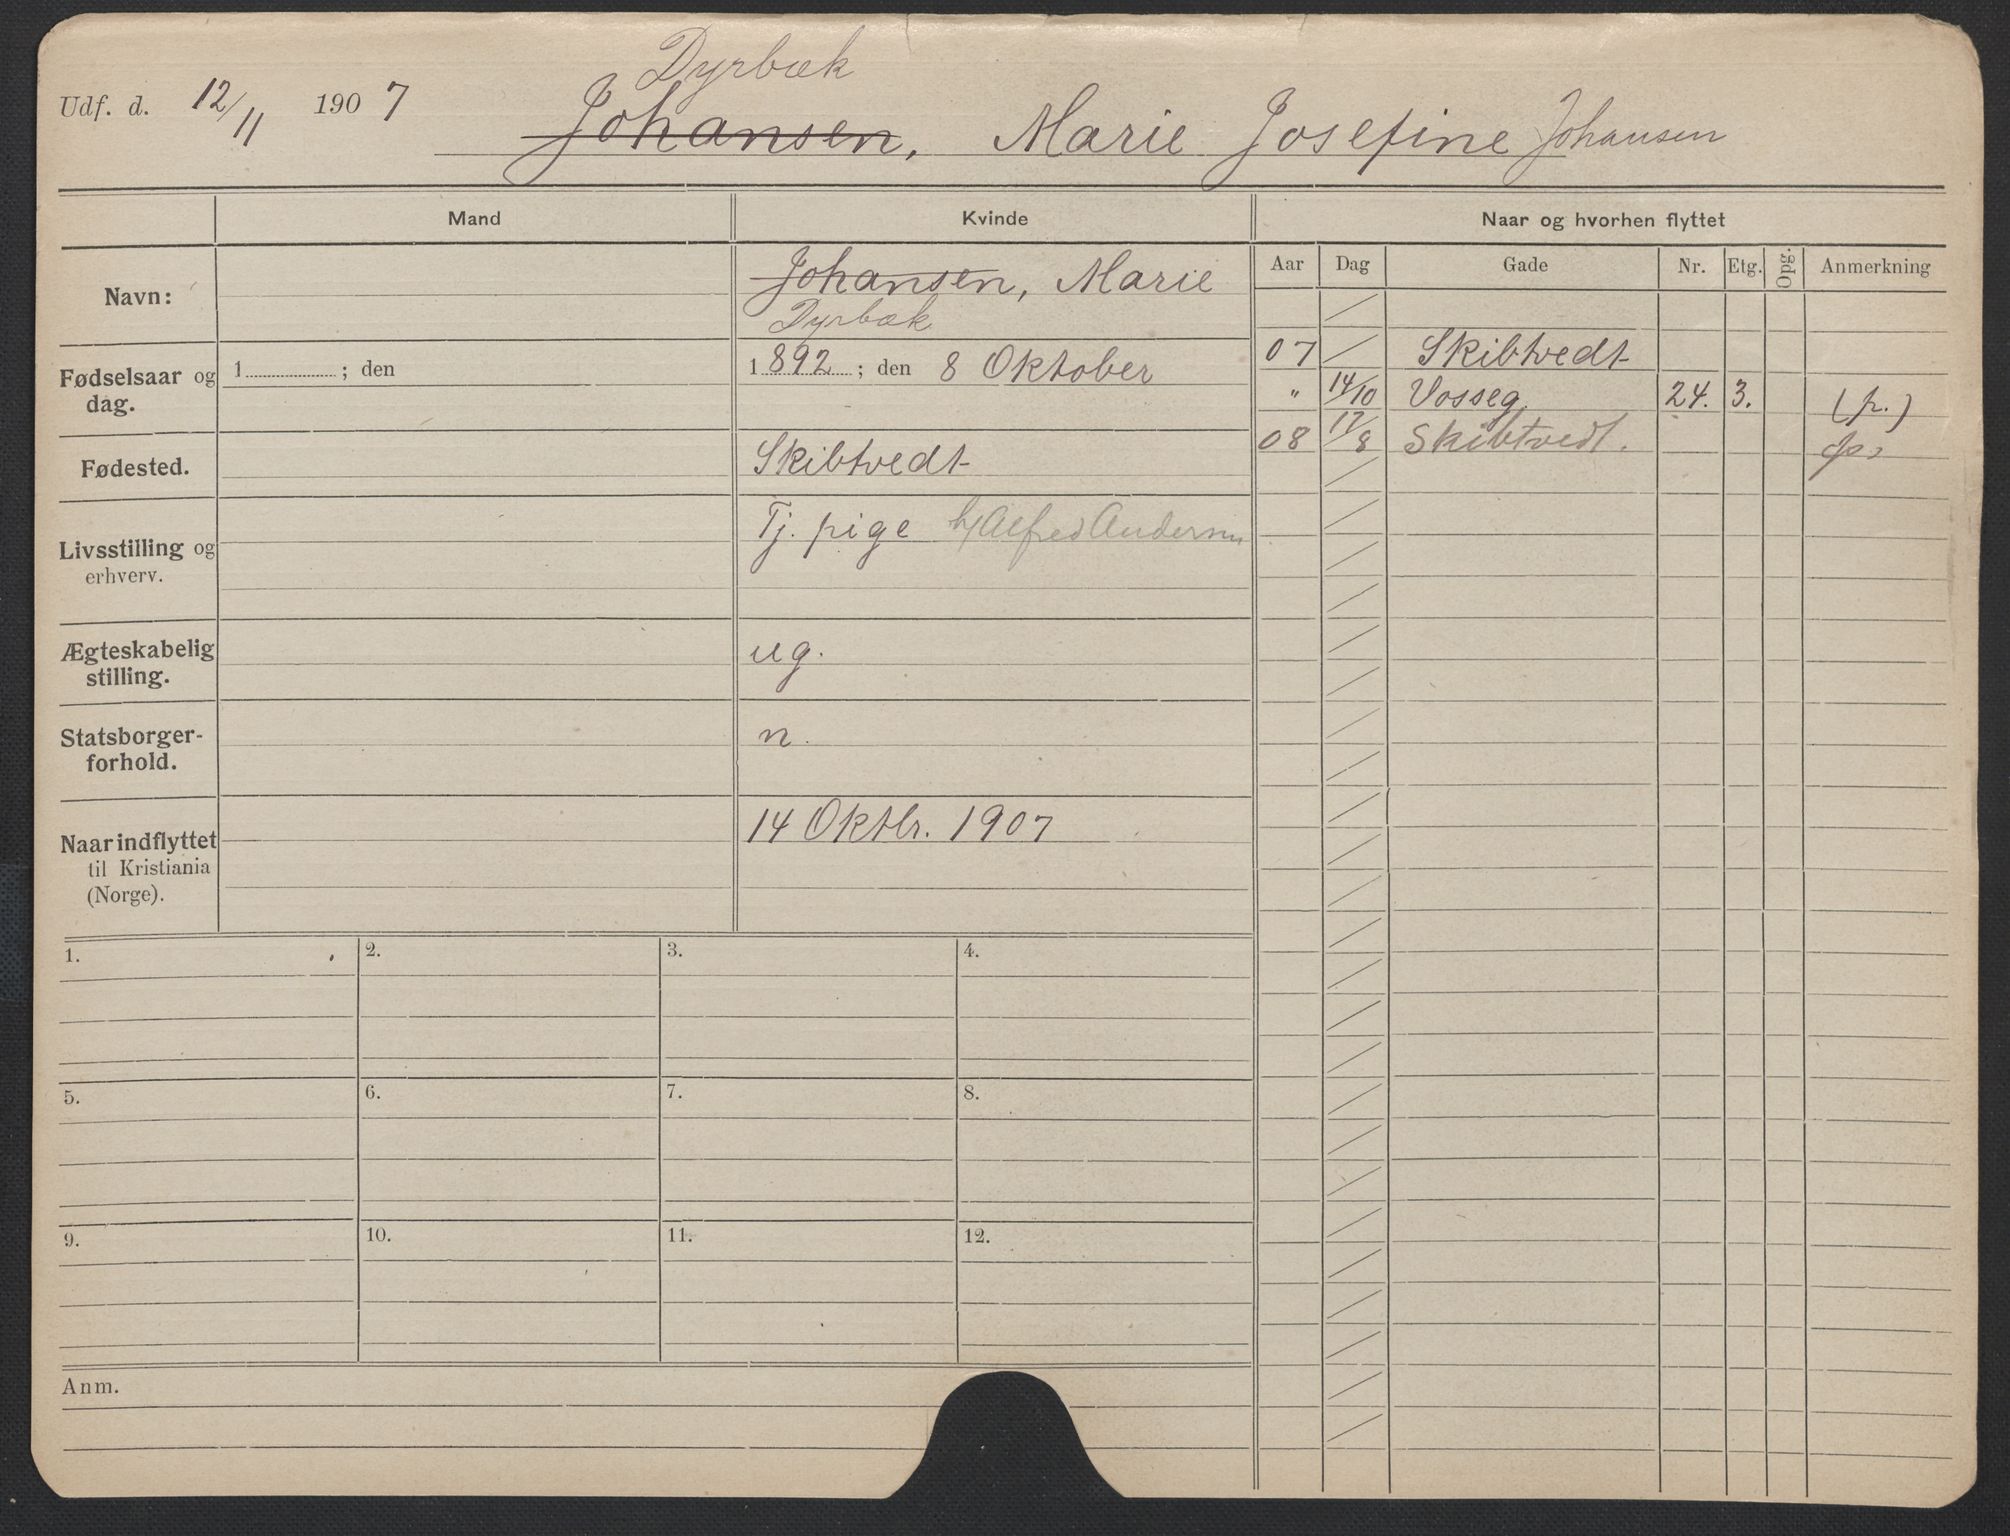 Dyrbæk
Udf. d. 12/11 1907 Johansen, Marie Josefine Johansen
Mand Kvinde Naar og hvorhen flyttet
Aar Dag Gade Nr. Etg. Opg. Anmerkning
Navn: Johansen, Marie
Dyrbæk
07 Skibtvedt
" 14/10 Vosseg. 24. 3. (p.)
08 17/8 Skibtvedt.
Fødselsaar og dag. 1 ; den 1892 ; den 8 Oktober
Fødested. Skibtvedt
Livsstilling og Tj. pige h/Alfred Andersen
erhverv.
Ægteskabelig ug.
stilling.
Statsborger- n.
forhold.
Naar indflyttet 14 Oktbr. 1907
til Kristiania
(Norge).
1. 2. 3. 4.
5. 6. 7. 8.
9. 10. 11. 12.
Anm.